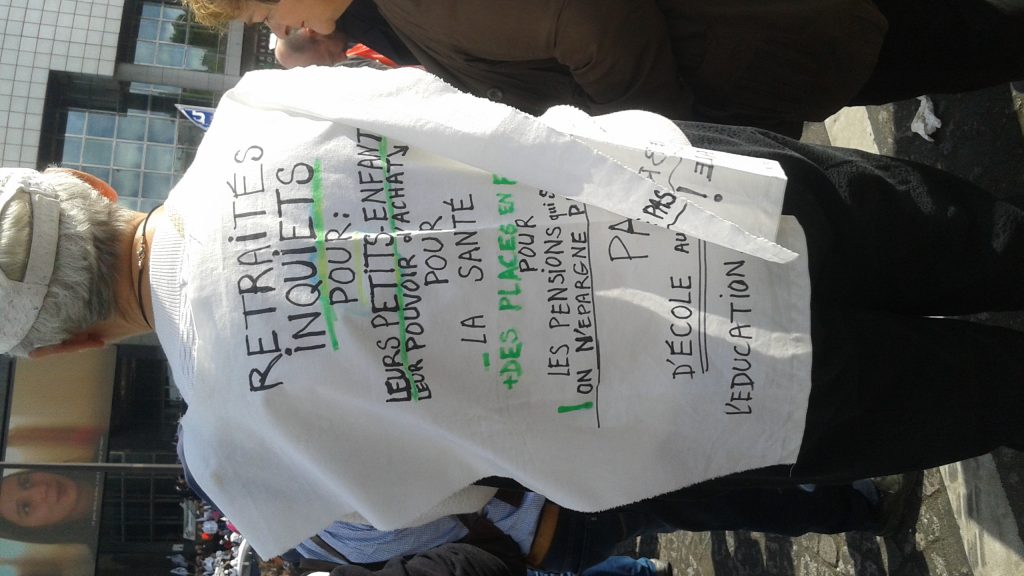 RETRAITÉS
INQUIETS
POUR:
LEURS PETITS-ENFANT
LEUR POUVOIR D'ACHAT
POUR
- LA SANTÉ
+DES PLACES EN
POUR
LES PENSIONS qui
! ON N'EPARGNE
PAS
D'ÉCOLE AU
L'EDUCATION